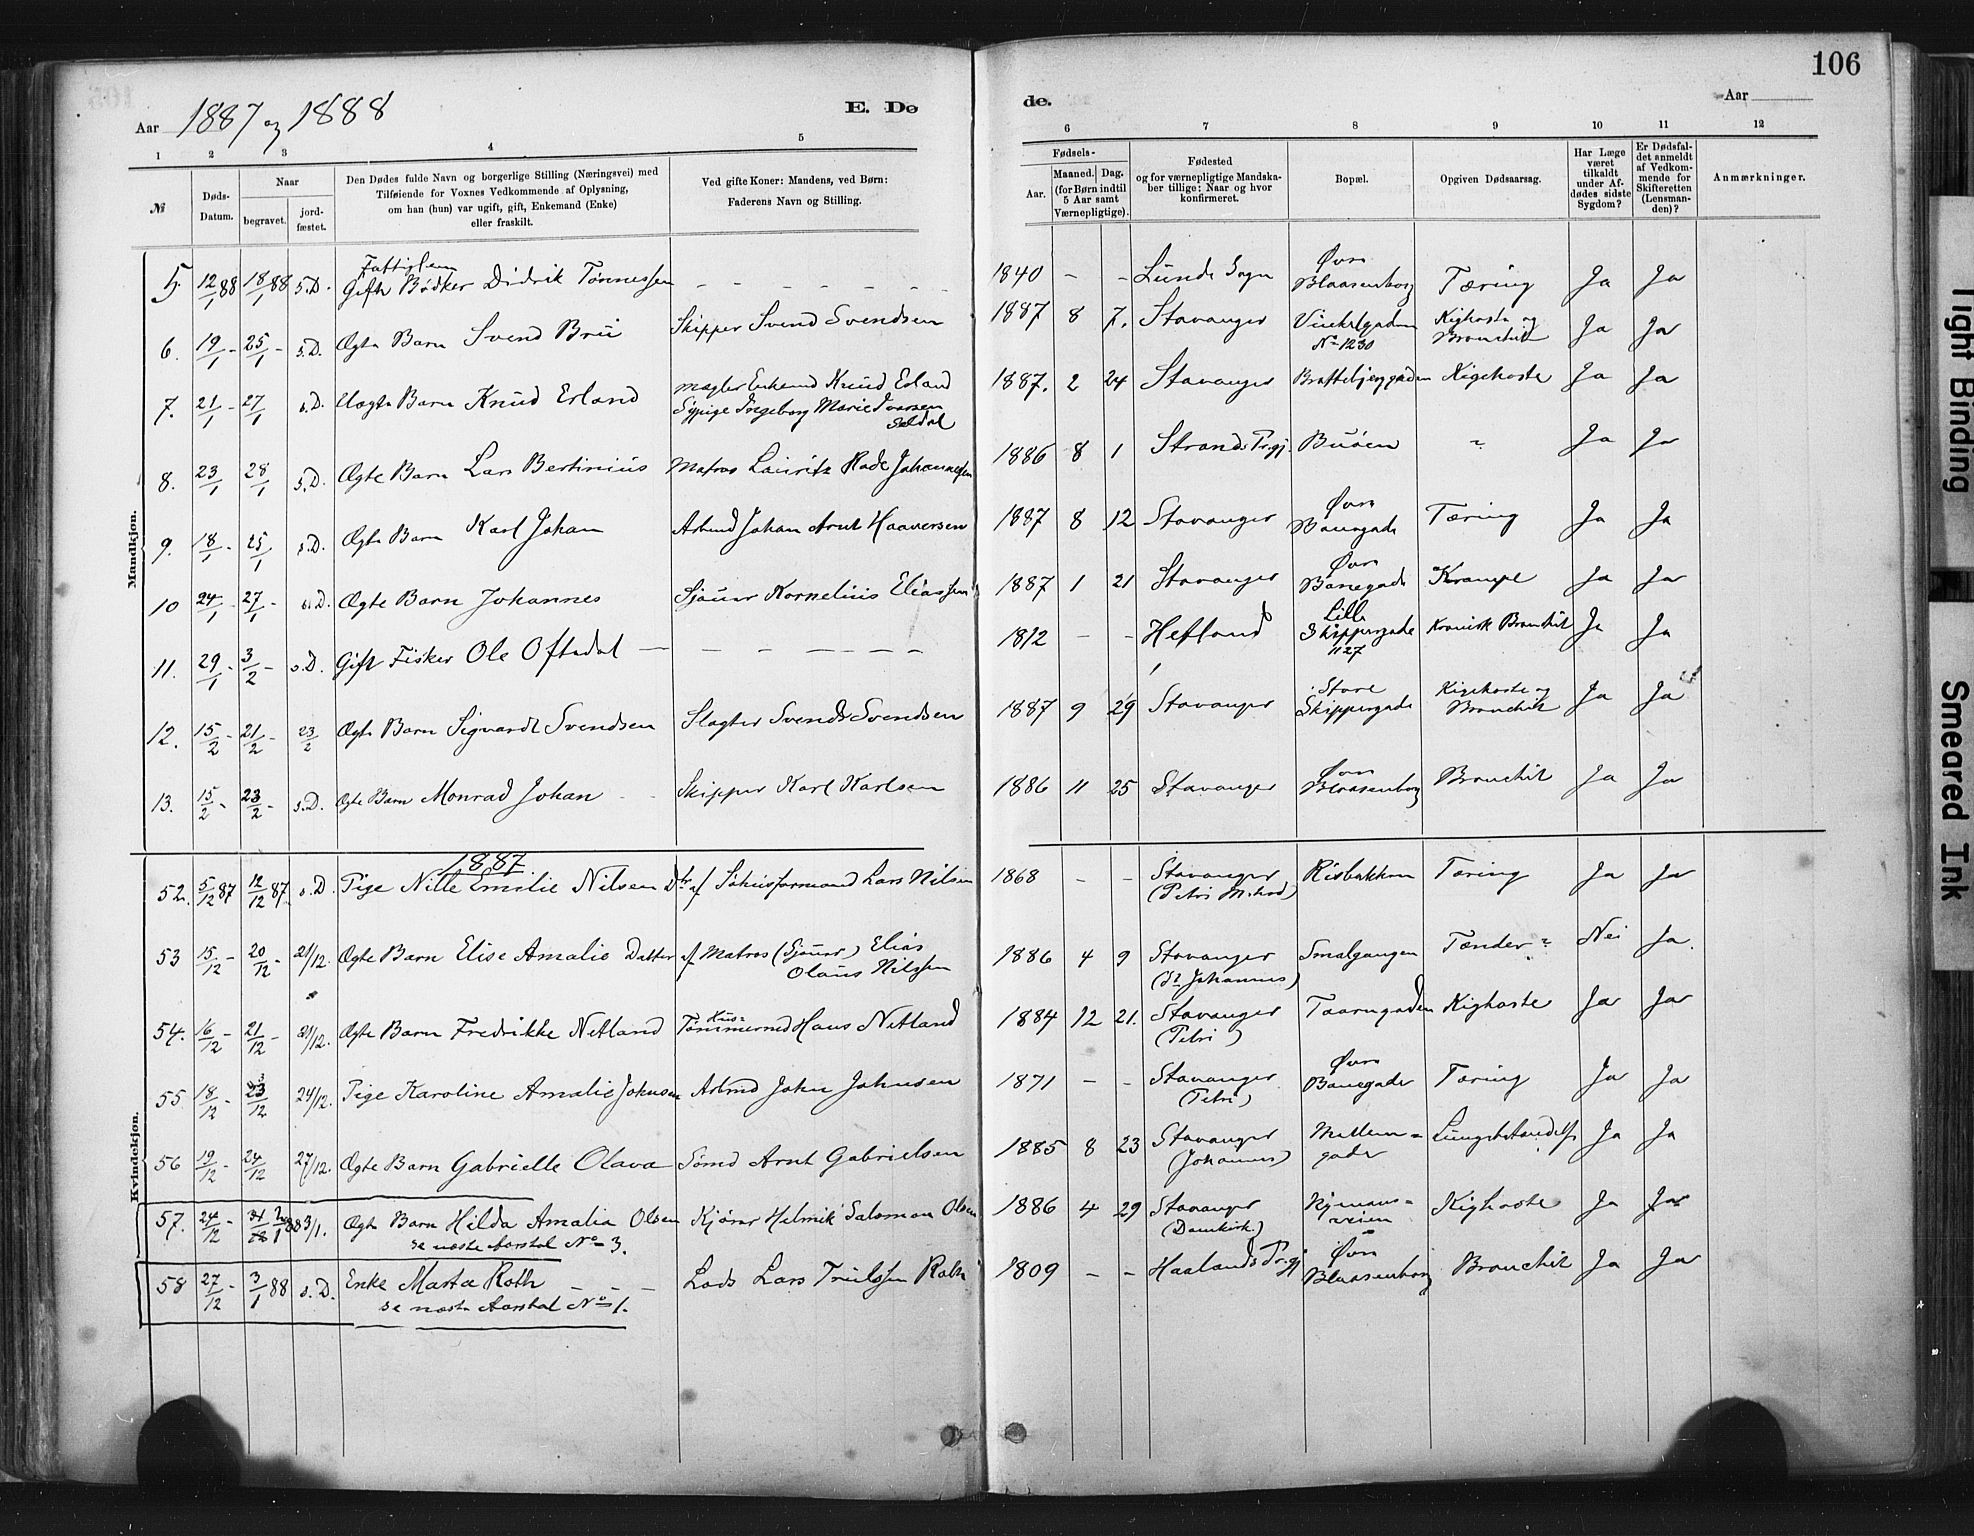 106
Aar 1887 og 1888
E. Dø
de.
Aar
1 2 3 4 5 6 7 8 9 10 11 12
№
Døds-Datum.
Naar
begravet.
jord-fæstet.
Den Dødes fulde Navn og borgerlige Stilling (Næringsvei) med
Tilføiende for Voxnes Vedkommende af Oplysning,
om han (hun) var ugift, gift, Enkemand (Enke)
eller fraskilt.
Ved gifte Koner: Mandens, ved Børn:
Faderens Navn og Stilling.
Fødsels-
Aar.
Maaned. Dag.
(for Børn indtil
5 Aar samt
Værnepligtige).
Fødested
og for værnepligtige Mandska-
ber tillige: Naar og hvor
konfirmeret.
Bopæl.
Opgiven Dødsaarsag.
Har Læge
været
tilkaldt
under Af-
dødes sidste
Sygdom?
Er Dødsfal-
det anmeldt
af Vedkom-
mende for
Skifteretten
(Lensman-
den)?
Anmærkninger.
Mandkjøn.
5. 12/1 88 18/1 88 s.D. Fattiglem Gift Bødker Didrik Tønnessen - - - - - - 1840 - - Lunde Sogn Øvre Blaasenborg Tæring Ja Ja
6. 19/1 - 25/1 - s.D. Ægte Barn Svend Brü Skipper Svend Svendsen 1887 8 7. Stavanger Vinkelgaden No 1230 Kighoste og Bronchit Ja Ja
7. 21/1 - 27/1 s.D. Uægte Barn Knud Erland Mægler Enkemd Knud Erland Sypige Ingeborg Marie Ivarsen 1887. 2 24 Stavanger Brattebjerggaden Kigehoste Ja Ja
8. 23/1 28/1 s.D. Ægte Barn Lars Bertinius Matros Lauritz Rade Johannessen 1886 8 1 Strands Prgj. Buøen " Ja Ja
9. 18/1 - 25/1 s.D. Ægte Barn Karl Johan Arbmd Johan Arnt Haaversen 1887 8 12 Stavanger Øvre Banegade Tæring Ja Ja
10 24/1 - 27/1 - s.D. Ægte Barn Johannes Sjauer Kornelius Eliassen 1887 1 21 Stavanger Øvre Banegade Krampe Ja Ja
11. 29/1 - 3/2 - s.D. Gift Fisker Ole Oftedal - - - - - - 1812 - - Hetland Lille Skippergade 1127 Kronisk Bronchit Ja Ja
12. 15/2 - 21/2 - 23/2 Ægte Barn Sigvardt Svendsen Slagter Svend Svendsen 1887 9 29 Stavanger Store Skippergade Kigehoste og Bronchit Ja Ja
13. 15/2 - 23/2 - s.D. Ægte Barn Monrad Johan Skipper Karl Karlsen 1886 11 25 Stavanger Øvre Blaasenborg Bronchit Ja Ja
Kvindekjøn.
1887
52. 5/12 87 12/12 87. s.D. Pige Nille Emilie Nilsen Dtr af Lars Nilsen 1868 - - Stavanger (Petri Mthod) Risbakken Tæring Ja Ja
53 15/12 - 20/12 - 21/12. Ægte Barn Elise Amalie Datter af Matros (Sjauer) Elias Olaus Nilssen 1886 4 9 Stavanger (St Johannes) Smalgangen Tænder " Nei Ja.
54. 16/12 - 21/12 - 21/12. Ægte Barn Fredrikke Netland Hus= Tømmermd Hans Netland 1884 12 21. Stavanger (Petri) Taarngaden Kighoste Ja Ja
55 18/12 - 23/12 24/12. Pige Karoline Amalie Johnsen Arbmd John Johnsen 1871 - - Stavanger (Petri) Øvre Banegade Tæring Ja Ja
56 19/12 - 24/12 27/12. Ægte Barn Gabrielle Olava Sømd Arnt Gabrielsen 1885 8 23 Stavanger (Johannes) Mellem= gade Lungebetændelse Ja Ja
57. 24/12 - 2/1 88 3/1. Ægte Barn Hilda Amalia Olsen se næste Aarstal No 3. Kjører Helmik Salomon Olsen 1886 4 29 Stavanger (Domkirk.) veien Kighoste Ja Ja
58 27/12 - 3/1 88 s.D. Enke Marta Roth se næste Aarstal No 1. Lods Lars Trulssen Roth 1809 - - Haalands Prgj Øvre Blaasenborg Bronchit Ja Ja
Tight Binding
Smeared Ink